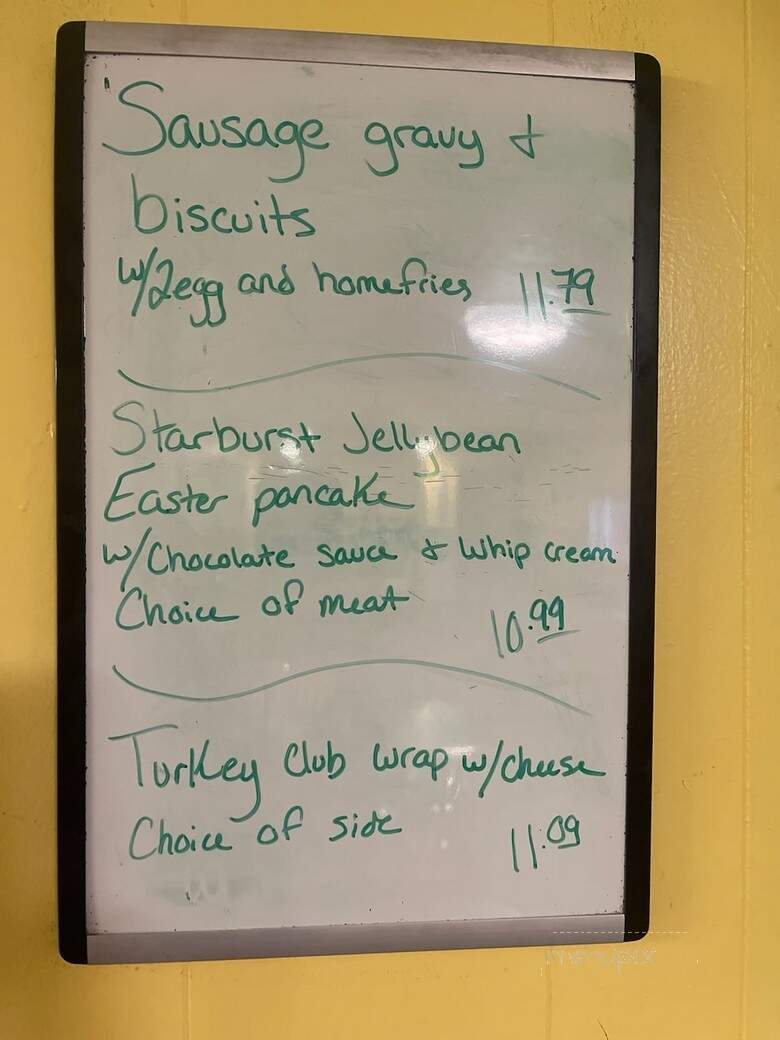 Sausage gravy &
biscuits
w/2egg and homefries 11.79
Starburst Jellybean
Easter pancake
w/Chocolate sauce & Whip cream
Choice of meat 10.99
Turkey Club wrap w/cheese
Choice of side 11.09
menupix